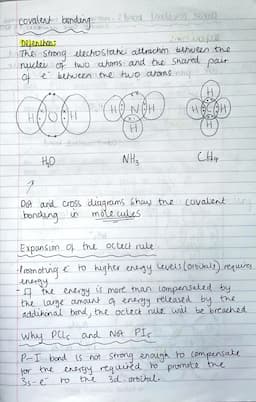 covalent bonding
Definition:
The strong electrostatic attraction between the
nuclei of two atoms and the shared pair
of e⁻ between the two atoms
H O H
H N H
H
H
H C H
H
H₂O NH₃ CH₄
Dot and cross diagrams show the covalent
bonding in molecules
Expansion of the octect rule
- Promoting e⁻ to higher energy levels (orbitals) requires
energy
- If the energy is more than compensated by
the large amount of energy released by the
additional bond, the octect rule will be breached
Why PCl₅ and Not PI₅
P-I bond is not strong enough to compensate
for the energy required to promote the
3s - e⁻ to the 3d orbital.